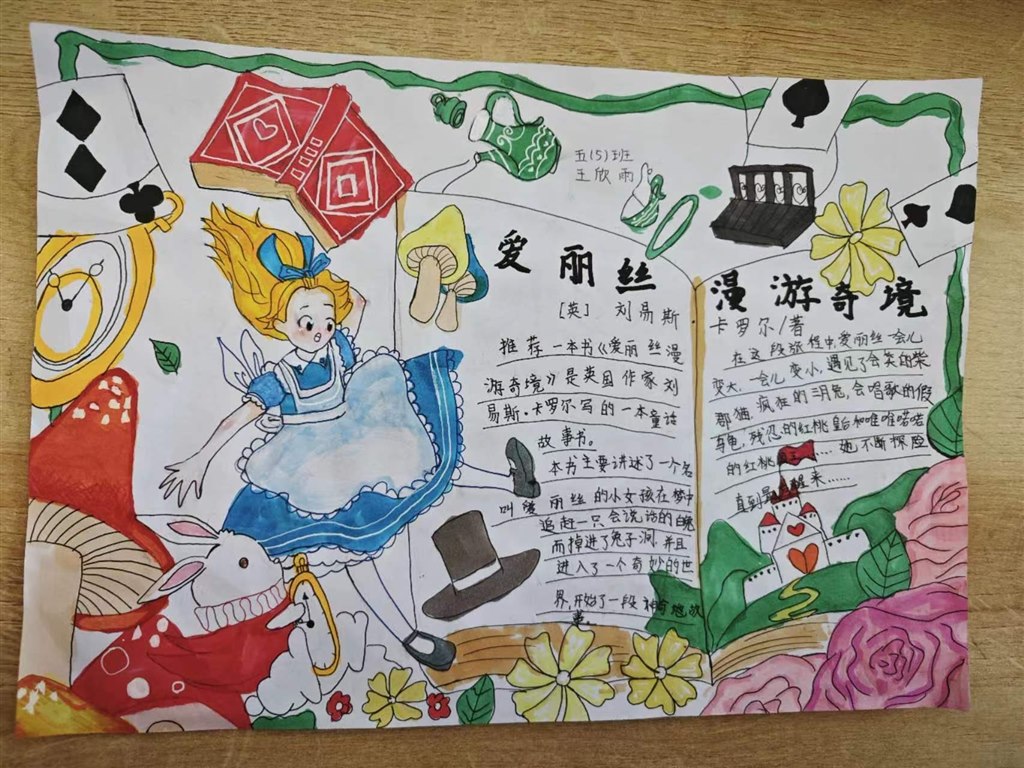 五(5)班
王欣雨
爱丽丝
[英] 刘易斯
推荐一本书《爱丽丝漫
游奇境》是英国作家刘
易斯.卡罗尔写的一本童话
故事书。
本书主要讲述了一个名
叫爱丽丝的小女孩在梦中
追赶一只会说话的白兔
而掉进了兔子洞,并且
进入了一个奇妙的世
界,开始了一段神奇的故
事。
漫游奇境
卡罗尔/著
在这段旅程中爱丽丝一会儿
变大,一会儿变小,遇见了会笑的柴
郡猫,疯狂的三月兔,会唱歌的假
海龟,残忍的红桃皇后和唯唯诺诺
的红桃国王……她不断探险
直到最后醒来……